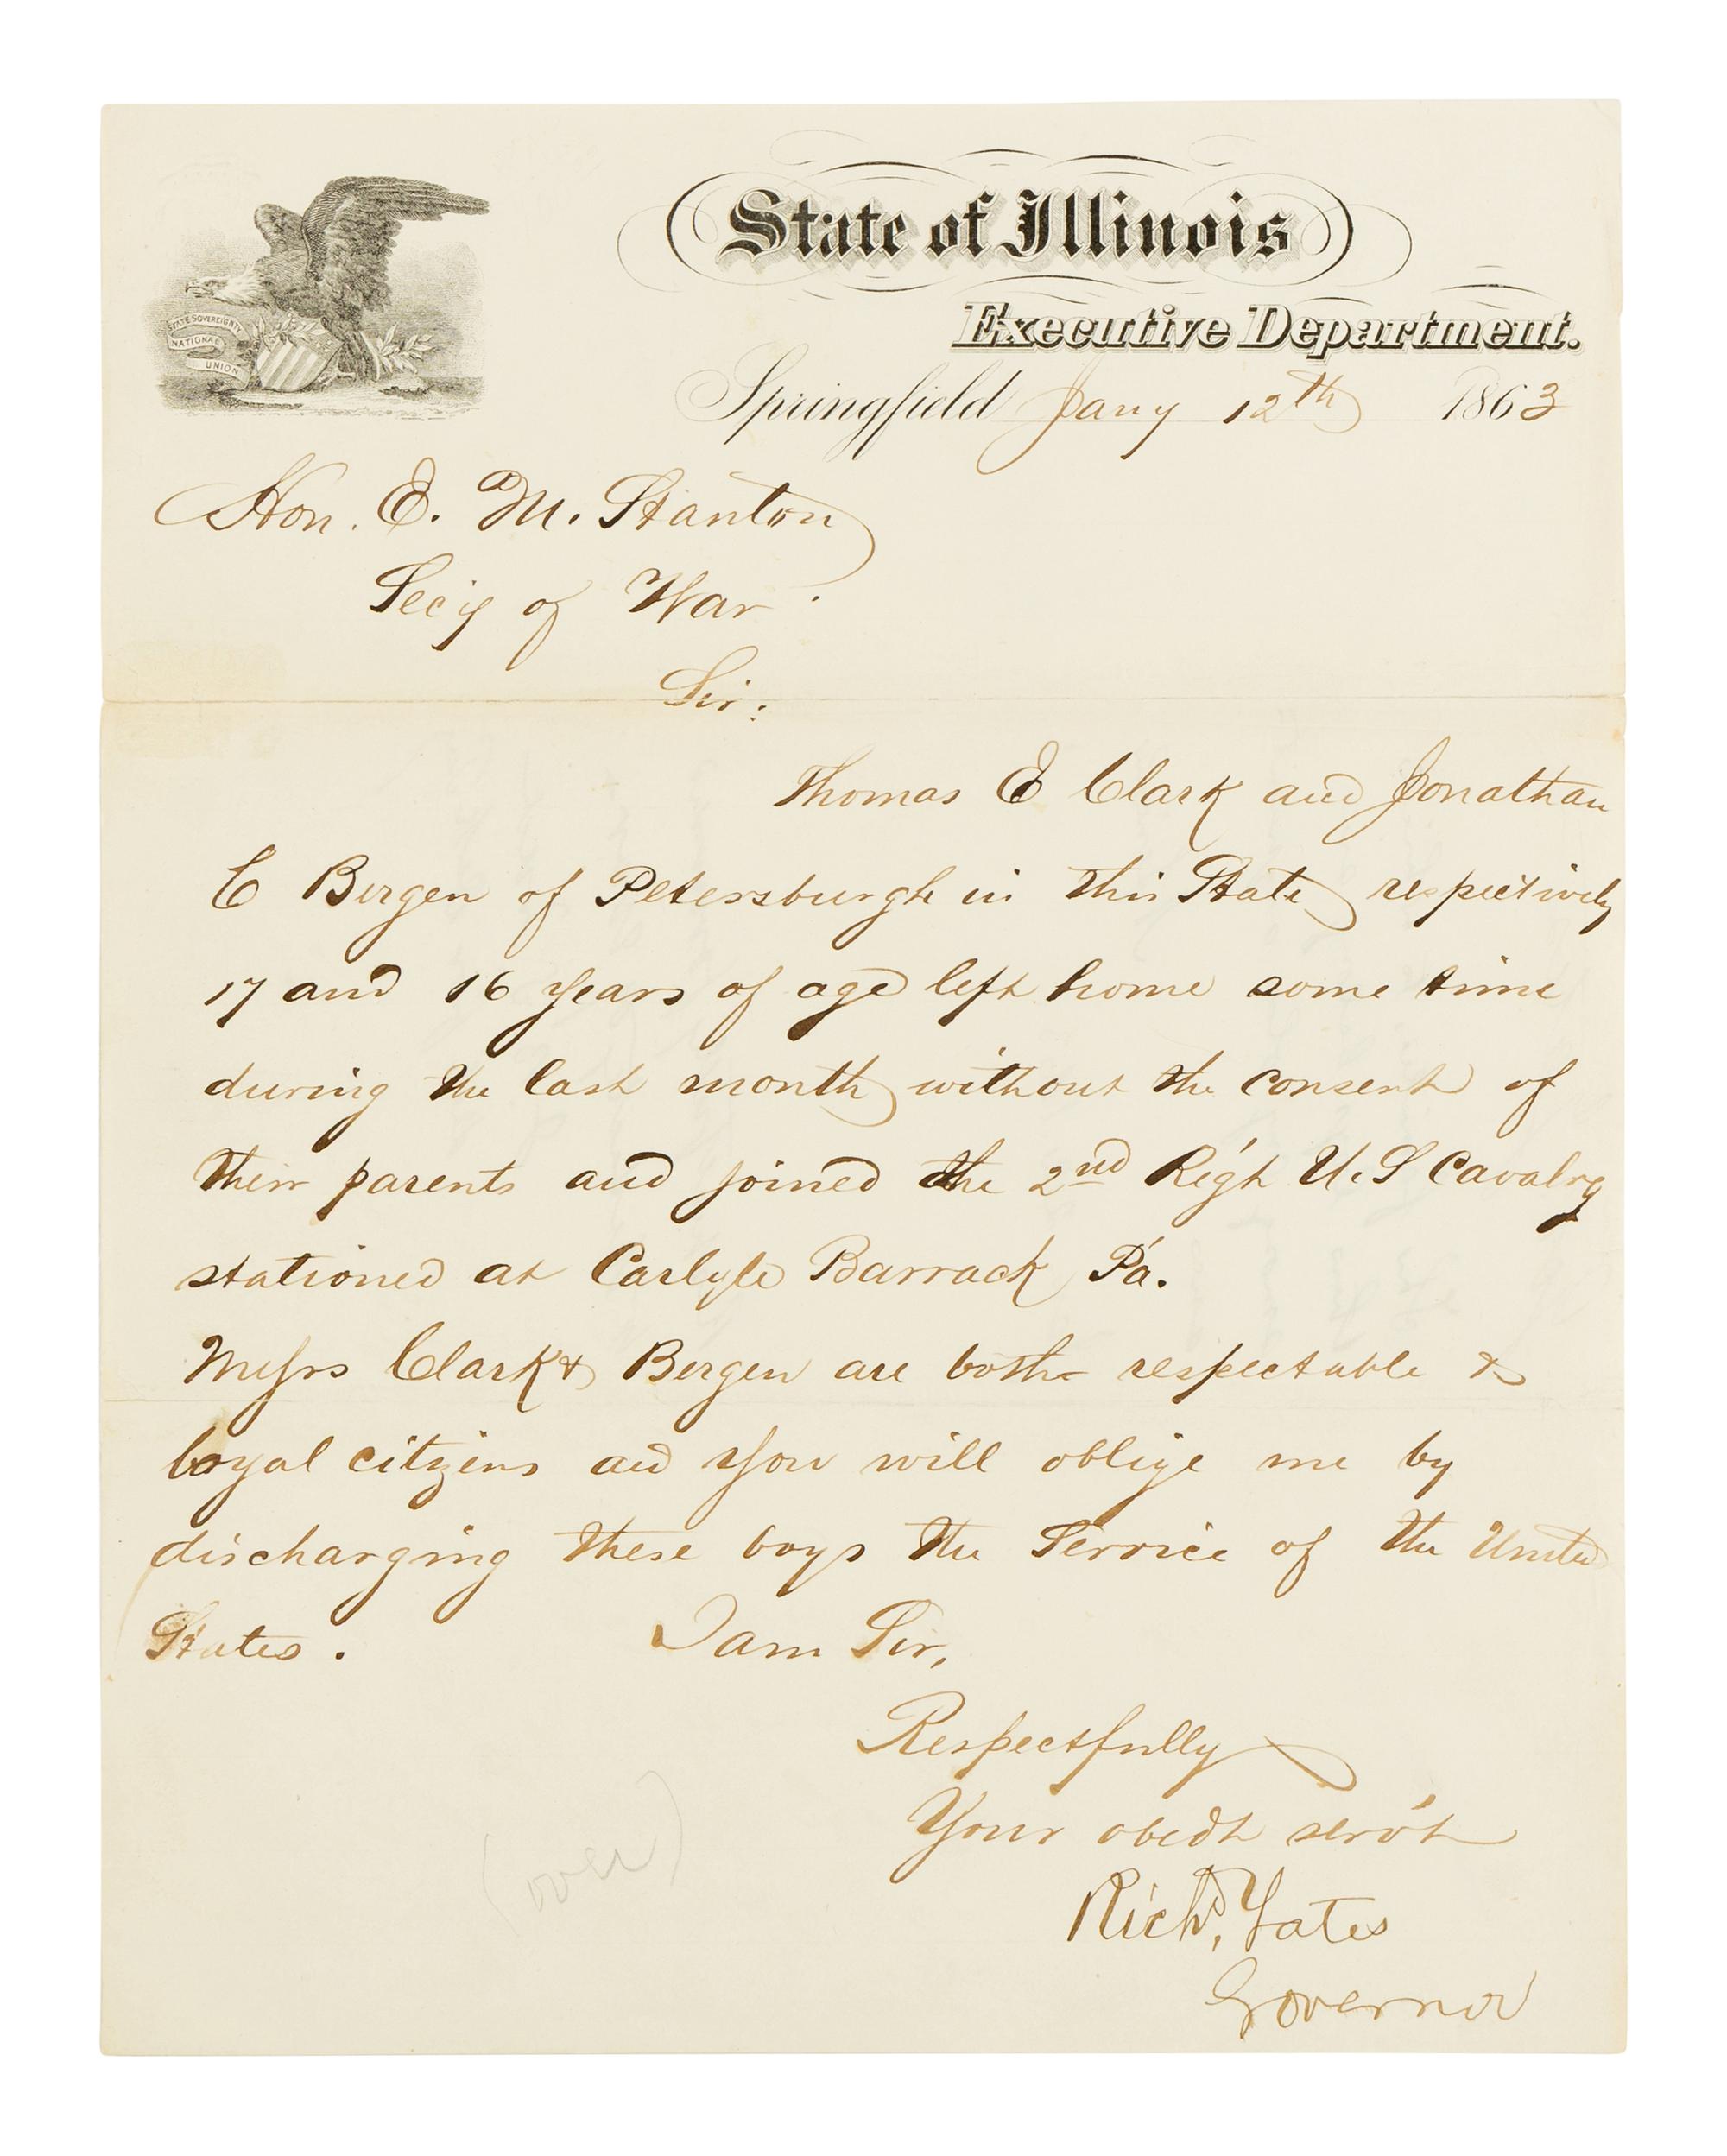 State of Illinois
Executive Department.
STATE SOVEREIGNTY
NATIONAL
UNION
Springfield Jany 12th 1863
Hon. E. M. Stanton
Sec'y of War.
Sir:
Thomas E Clark and Jonathan
C Bergen of Petersburgh in this State respectively
17 and 16 years of age left home some time
during the last month without the consent of
their parents and joined the 2nd Reg't U.S Cavalry
stationed at Carlyle Barrack Pa.
Messrs Clark & Bergen are both respectable &
loyal citizens and you will oblige me by
discharging these boys the Service of the United
States. I am Sir,
Respectfully
Your obedt serv't
Richd, Yates
Governor
(over)